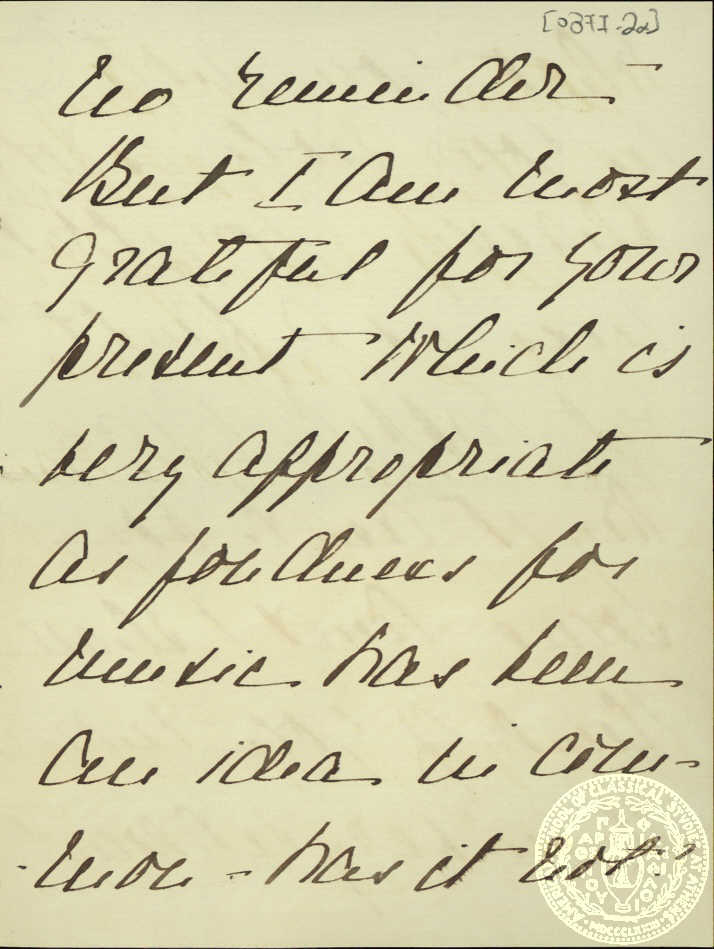 [037I-2a]
no reminder –
But I am most
grateful for your
present which is
very appropriate
as fondness for
music has been
an idea in com-
mon – has it not?